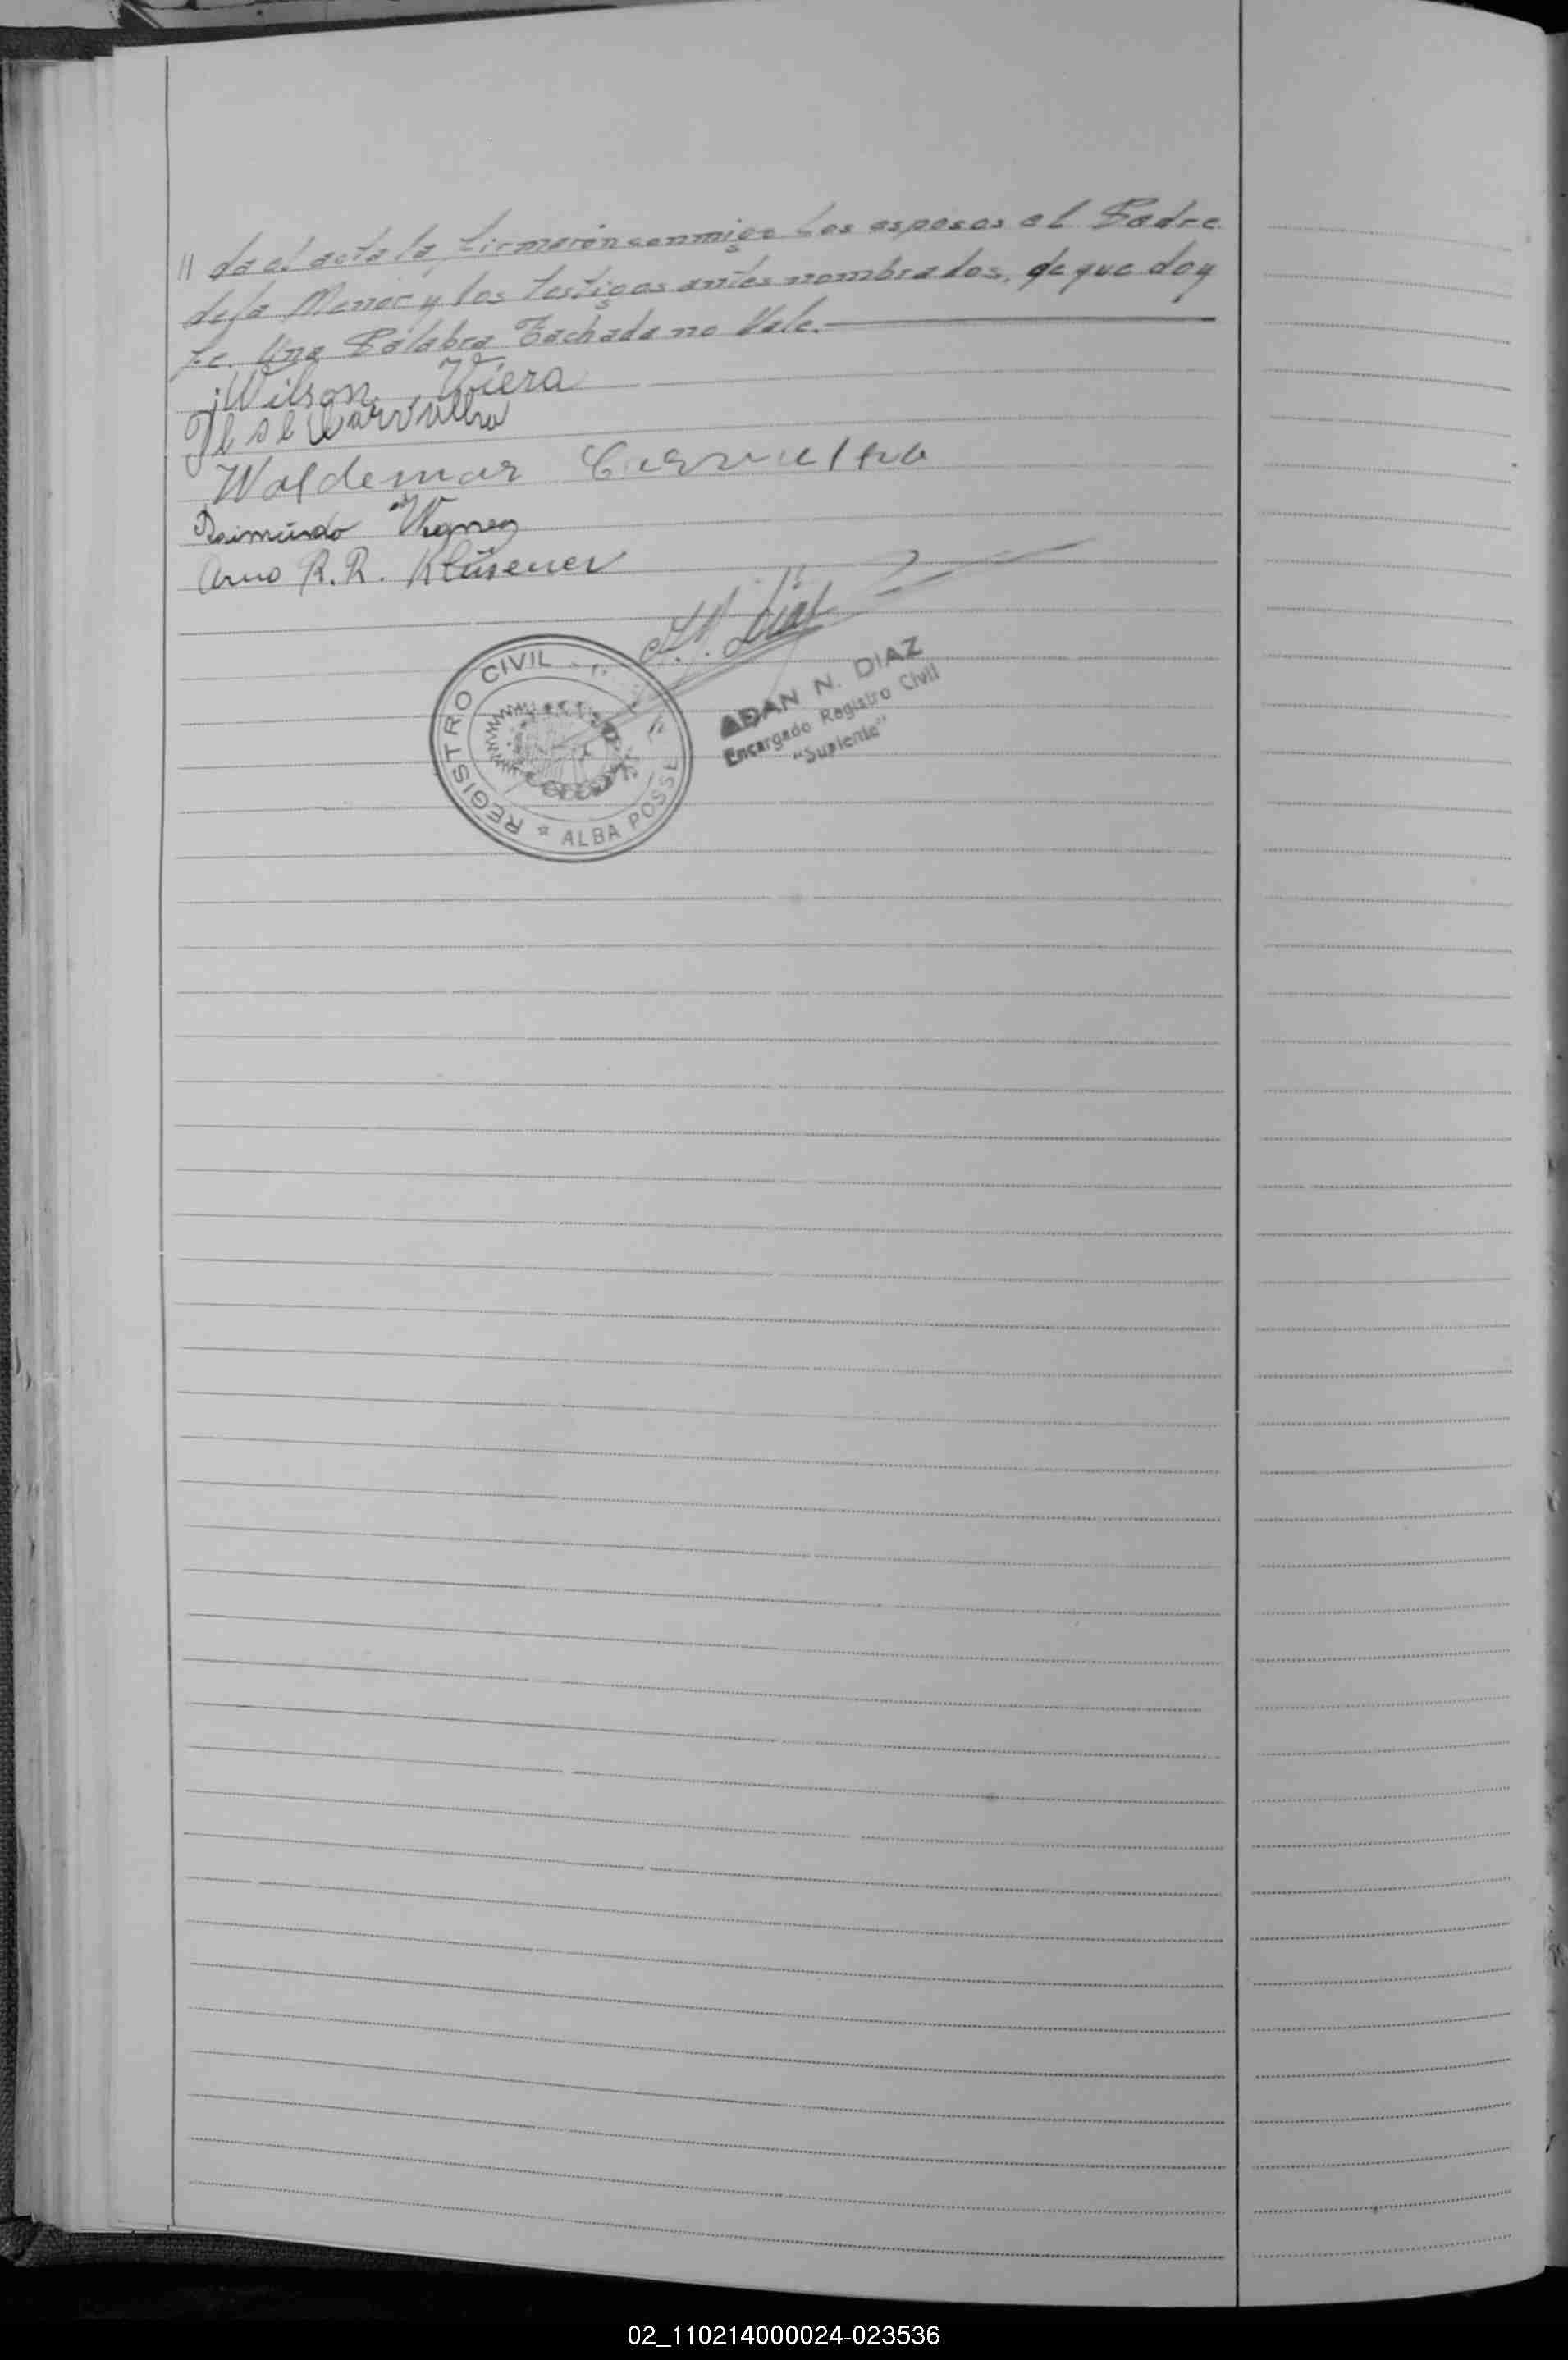 // da el acta la firmaron conmigo Los esposos el Padre
de la Menor y los Testigos antes nombrados, de que doy
Fe. Una Palabra Tachada no Vale.
Wilson Viera
Ilse Carvalho
Waldemar Carvalho
Raimundo
Arno R. R. Klüsener
A. N. Diaz
REGISTRO CIVIL
ALBA POSSE
ADAN N. DIAZ
Encargado Registro Civil
"Suplente"
02_110214000024-023536